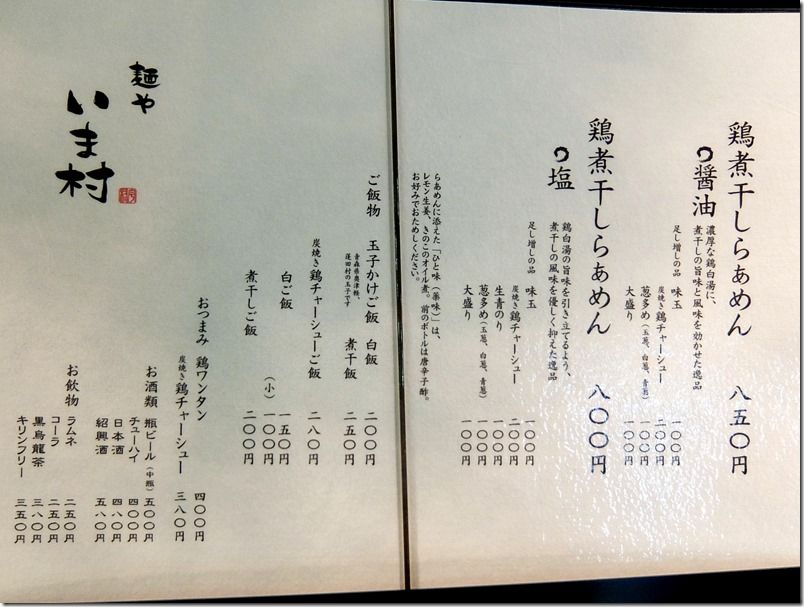 鶏煮干しらぁめん 八五〇円
醤油
濃厚な鶏白湯に、
煮干しの旨味と風味を効かせた逸品
足し増しの品 味玉 一〇〇円
炭焼き鶏チャーシュー 二〇〇円
葱多め(玉葱、白葱、青葱) 一〇〇円
大盛り 一〇〇円
鶏煮干しらぁめん 八〇〇円
塩
鶏白湯の旨味を引き立てるよう、
煮干しの風味を優しく抑えた逸品
足し増しの品 味玉 一〇〇円
炭焼き鶏チャーシュー 二〇〇円
生青のり 一〇〇円
葱多め(玉葱、白葱、青葱) 一〇〇円
大盛り 一〇〇円
らあめんに添えた「ひと味(薬味)」は、
レモン生姜、きのこのオイル煮。前のボトルは唐辛子酢。
お好みでおためしください。
ご飯物 玉子かけご飯 白飯 二〇〇円
煮干飯 二五〇円
青森県奥津軽、
蓬田村の玉子です
炭焼き鶏チャーシューご飯 二八〇円
白ご飯 一五〇円
(小) 一〇〇円
煮干しご飯 二〇〇円
おつまみ 鶏ワンタン 四〇〇円
炭焼き鶏チャーシュー 三八〇円
お酒類 瓶ビール(中瓶) 五〇〇円
チューハイ 四〇〇円
日本酒 四八〇円
紹興酒 五八〇円
お飲物 ラムネ 二五〇円
コーラ 二五〇円
黒烏龍茶 三八〇円
キリンフリー 三五〇円
麺や
いま村